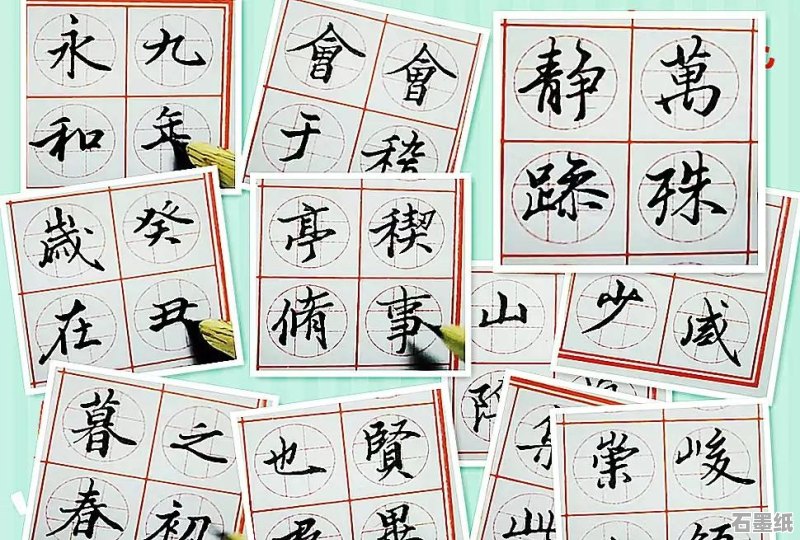 永九
和年
會會
于稽
静萬
躁殊
歲癸
在丑
亭稧
脩事
山
少咸
暮之
春初
也賢
羣畢
崇峻
領
石墨纸